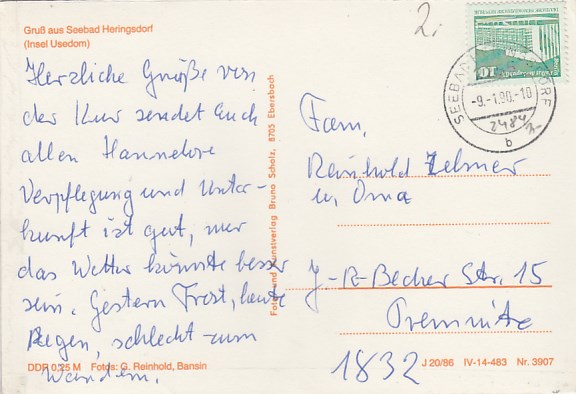 Gruß aus Seebad Heringsdorf
(Insel Usedom)
Herzliche Grüße von
der Kur sendet Euch
allen Hannelore
Verpflegung und Unter-
kunft ist gut, nur
das Wetter könnte besser
sein. Gestern Frost, heute
Regen, schlecht zum
Wandern.
DDR 0,25 M Fotos: G. Reinhold, Bansin
Foto- und Kunstverlag Bruno Scholz, 8705 Ebersbach
2.
10
SEEBAD
DORF
-9.-1.90.-10
b
Fam.
Reinhold Zelmer
u. Oma
J-R-Becher Str. 15
Premnitz
1832
J 20/86 IV-14-483 Nr. 3907